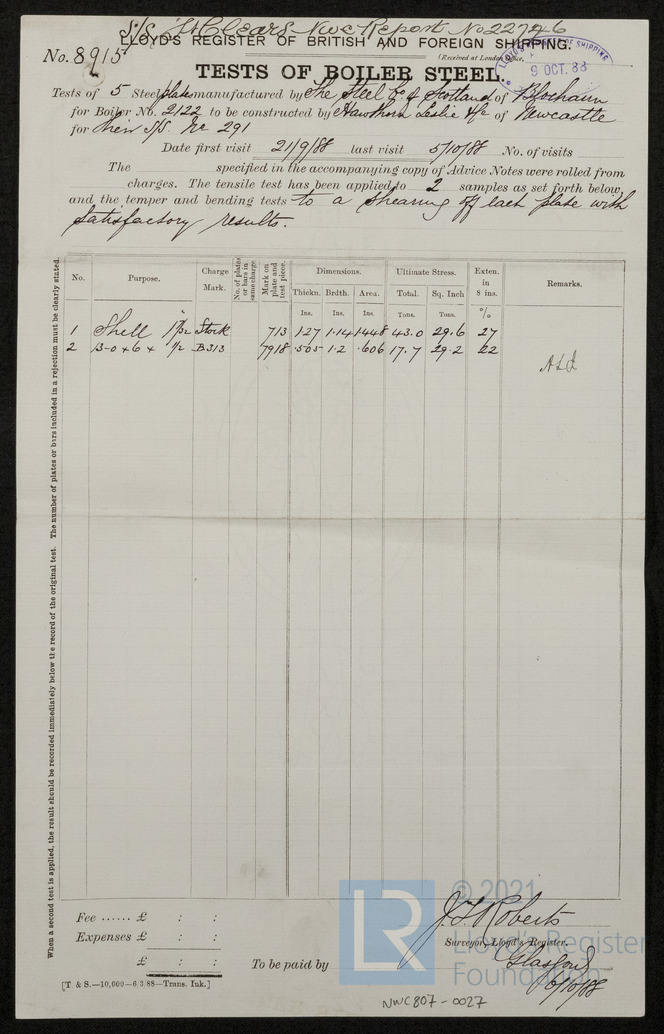 S/S "St Clears Nwc Report No 22726
LLOYD'S REGISTER OF BRITISH AND FOREIGN SHIPPING.
(Received at London Office,
LLOYD'S REGISTER OF SHIPPING
9 OCT. 88
No. 8915
TESTS OF BOILER STEEL.
Tests of 5 Steel plates manufactured by The Steel Co of Scotland of Blochairn
for Boiler No. 2122 to be constructed by Hawthorn Leslie & Co of Newcastle
for their S/S. No 291
Date first visit 21/9/88 last visit 5/10/88 No. of visits
The specified in the accompanying copy of Advice Notes were rolled from
charges. The tensile test has been applied to 2 samples as set forth below,
and the temper and bending tests to a shearing off each plate with
satisfactory results.
When a second test is applied, the result should be recorded immediately below the record of the original test. The number of plates or bars included in a rejection must be clearly stated.
No. Purpose. Charge Mark. No. of plates or bars in same charge Mark on plate and test piece. Dimensions. Ultimate Stress. Exten. in 8 ins. Remarks.
Thickn. Brdth. Area. Total. Sq. Inch
Ins. Ins. Ins. Tons. Tons. %
1 Shell 1 1/32 Stock 713 1.27 1.14 1.448 43.0 29.6 27
2 B-0 + 6 + 1/2 B313 7918 .505 1.2 .606 17.7 29.2 22
Fee ...... £ : :
Expenses £ : :
£ : :
To be paid by
J. Roberts
Surveyor, Lloyd's Register.
Glasgow
6/10/88
[T. & S.—10,000—6/3/88—Trans. Ink.]
NWC807-0027
LR
© 2021
Lloyd's Register
Foundation